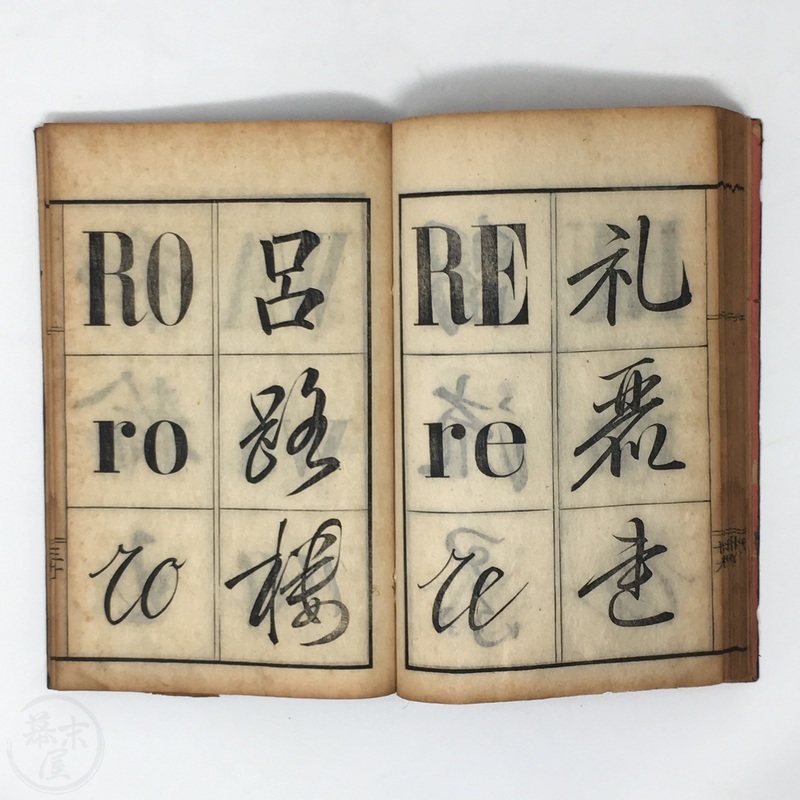 礼
麗
連
RE
re
re
呂
路
楼
RO
ro
ro
幕末屋